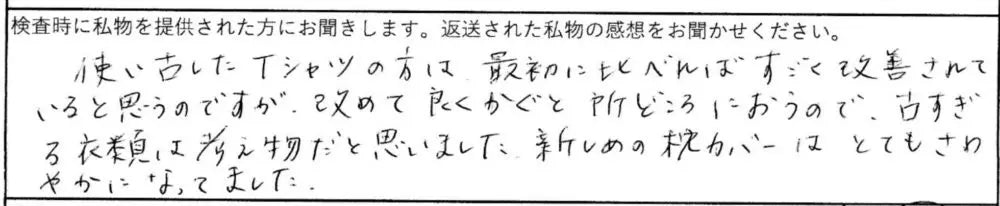 検査時に私物を提供された方にお聞きします。返送された私物の感想をお聞かせください。
使い古したTシャツの方は、最初に比べればすごく改善されて
いると思うのですが、改めて良くかぐと所どころにおうので、古すぎ
る衣類は考え物だと思いました。新しめの枕カバーは とてもさわ
やかになってました。